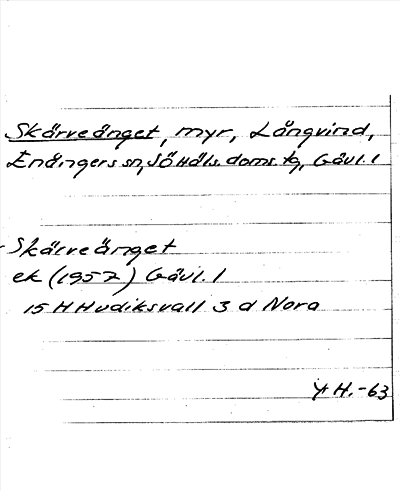 Skärveänget, myr, Långvind,
Enångers sn, SÖ Häls. doms. tg, Gävl. l
Skärveänget
ek (1957) Gävl. l
15 H Hudiksvall 3 d Nora
H. -63